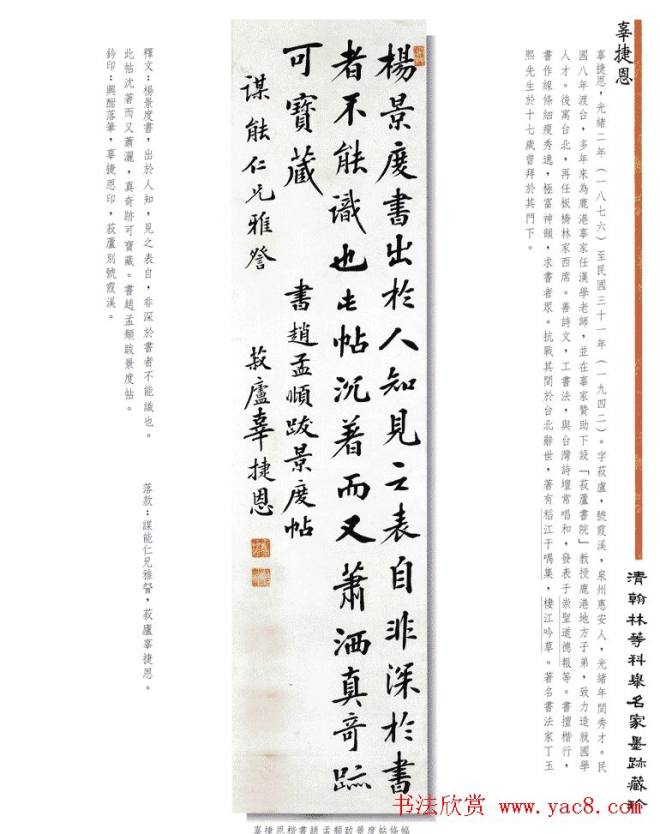 清翰林等科舉名家墨跡藏珍
辜捷恩
辜捷恩，光緒二年（一八七六）至民國三十一年（一九四二）。字菽盧，號霞溪，泉州惠安人，光緒年間秀才。民
國八年渡台，多年來為鹿港辜家任漢學老師，並在辜家贊助下設「菽蘆書院」教授鹿港地方子弟，致力造就國學
人才。後寓台北，再任板橋林家西席。善詩文，工書法，與台灣詩壇常唱和，發表于崇聖道德報等。書擅楷行，
書作線條細瘦秀逸，極富神韻，求書者眾。抗戰其間於台北辭世，著有稻江于喁集，棲江吟草。著名書法家丁玉
熙先生於十七歲曾拜於其門下。
楊景度書出於人知見之表自非深於書
者不能識也此帖沉著而又蕭洒真奇跡
可寶藏　書趙孟頫跋景度帖
謀能仁兄雅詧　菽廬辜捷恩
釋文：楊景度書，出於人知，見之表自，非深於書者不能識也。
此帖沈著而又蕭灑，真奇跡可寶藏。書趙孟頫跋景度帖。
落款：謀能仁兄雅詧，菽廬辜捷恩。
鈐印：興酣落筆，辜捷恩印，菽蘆別號霞溪。
辜捷恩楷書趙孟頫跋景度帖條幅
书法欣赏 www.yac8.com